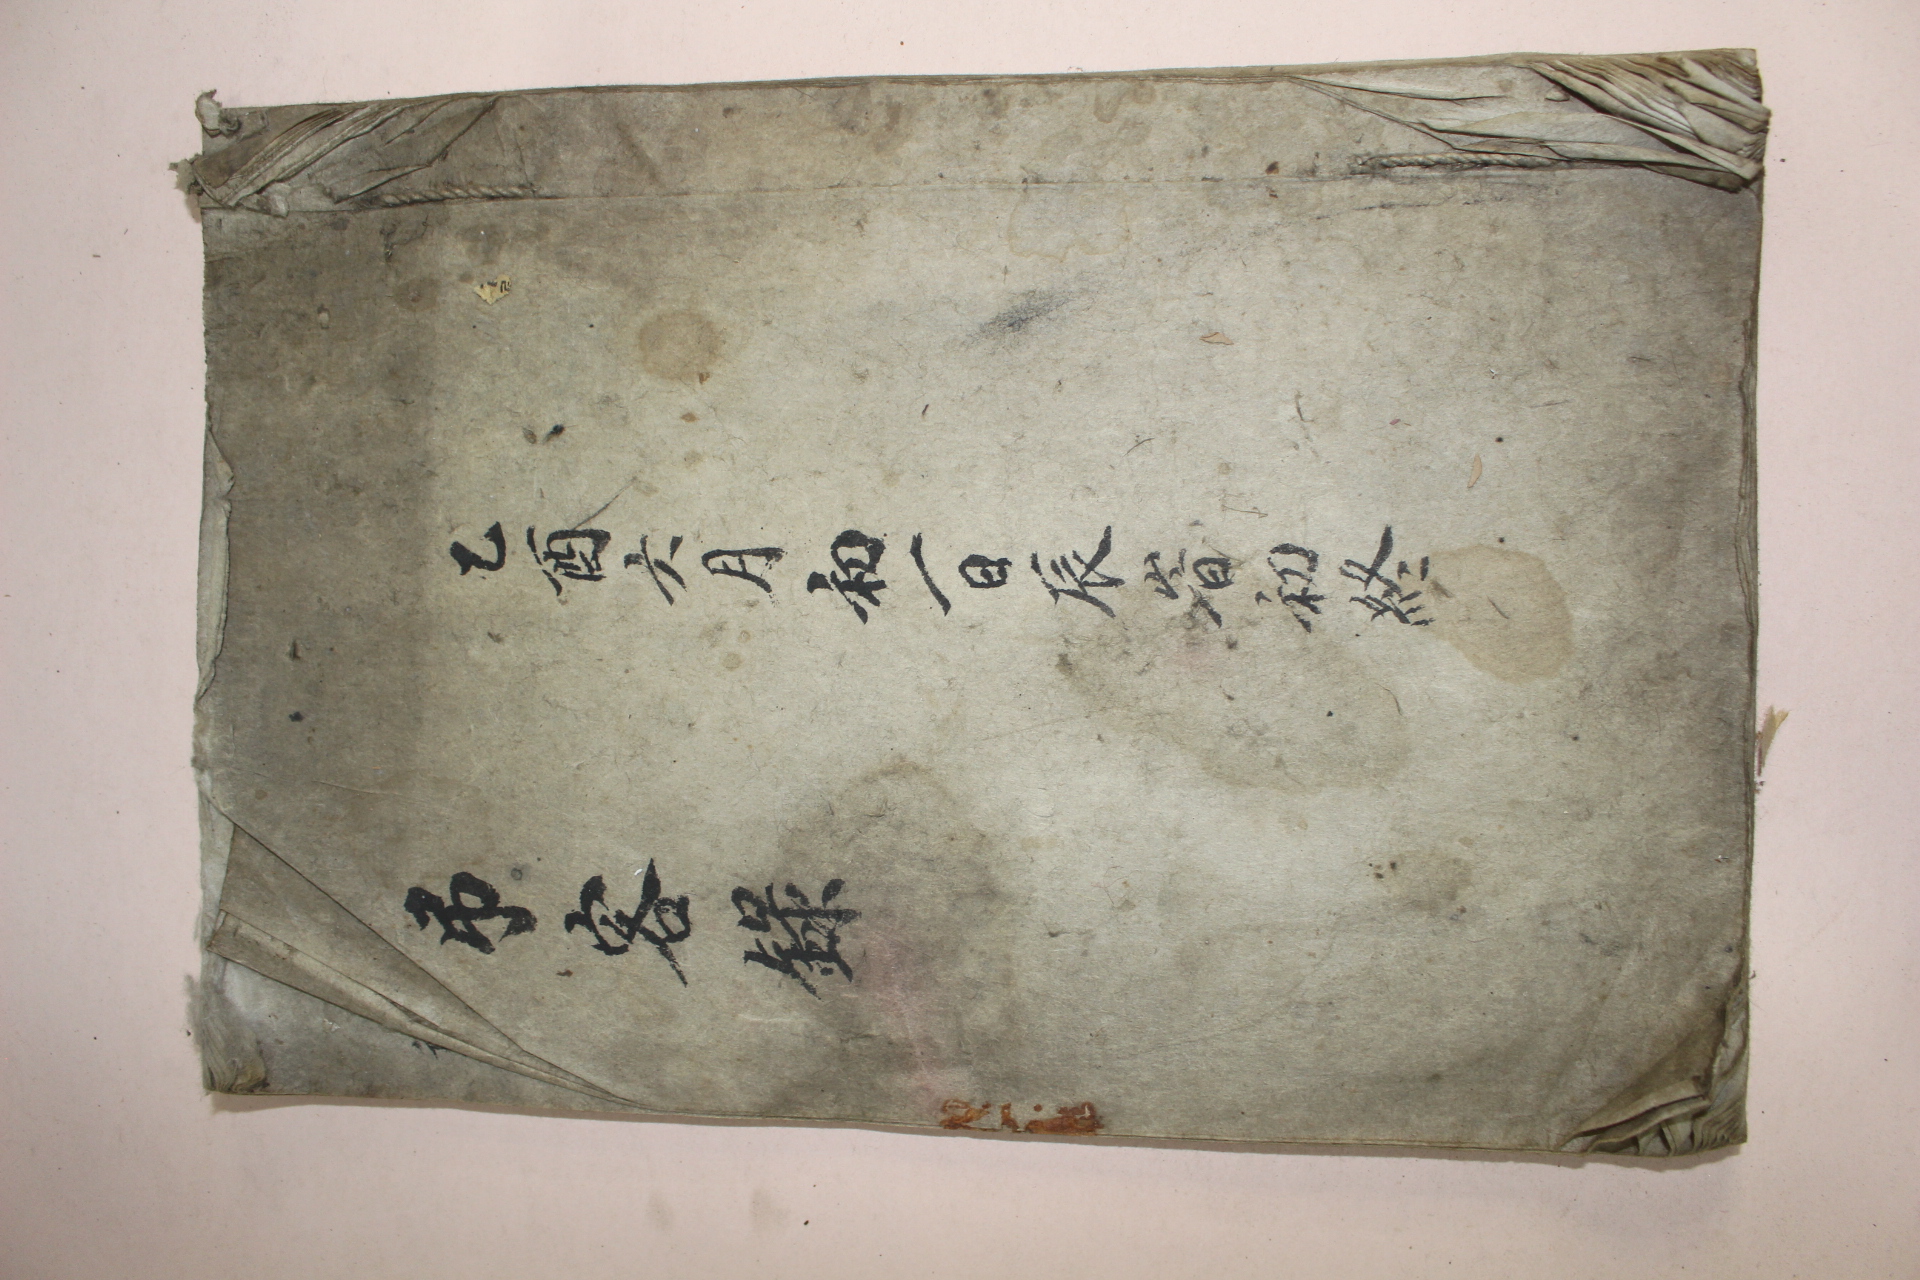 乙酉六月初一日辰時初終
弔客錄